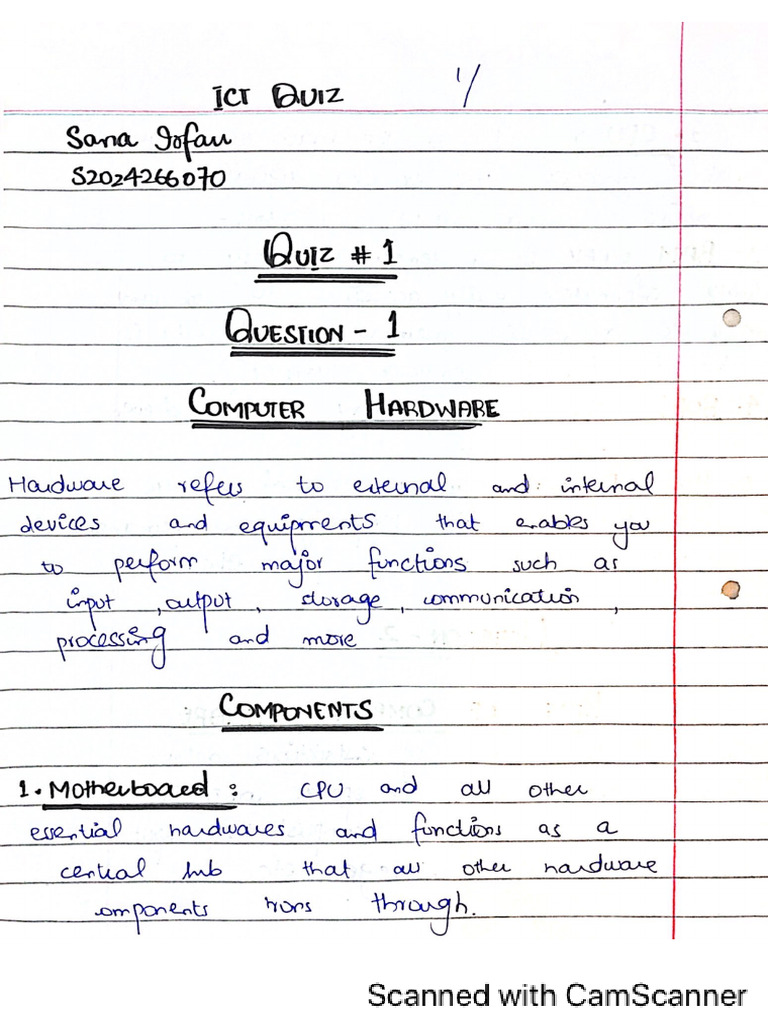 ICT QUIZ 1/
Sana Irfan
S2024266070
QUIZ # 1
QUESTION - 1
COMPUTER HARDWARE
Hardware refers to external and internal
devices and equipments that enables you
to perform major functions such as
input , output , storage , communication ,
processing and more
COMPONENTS
1. Motherboard : CPU and all other
essential hardwares and functions as a
central hub that all other hardware
omponents runs through.
Scanned with CamScanner